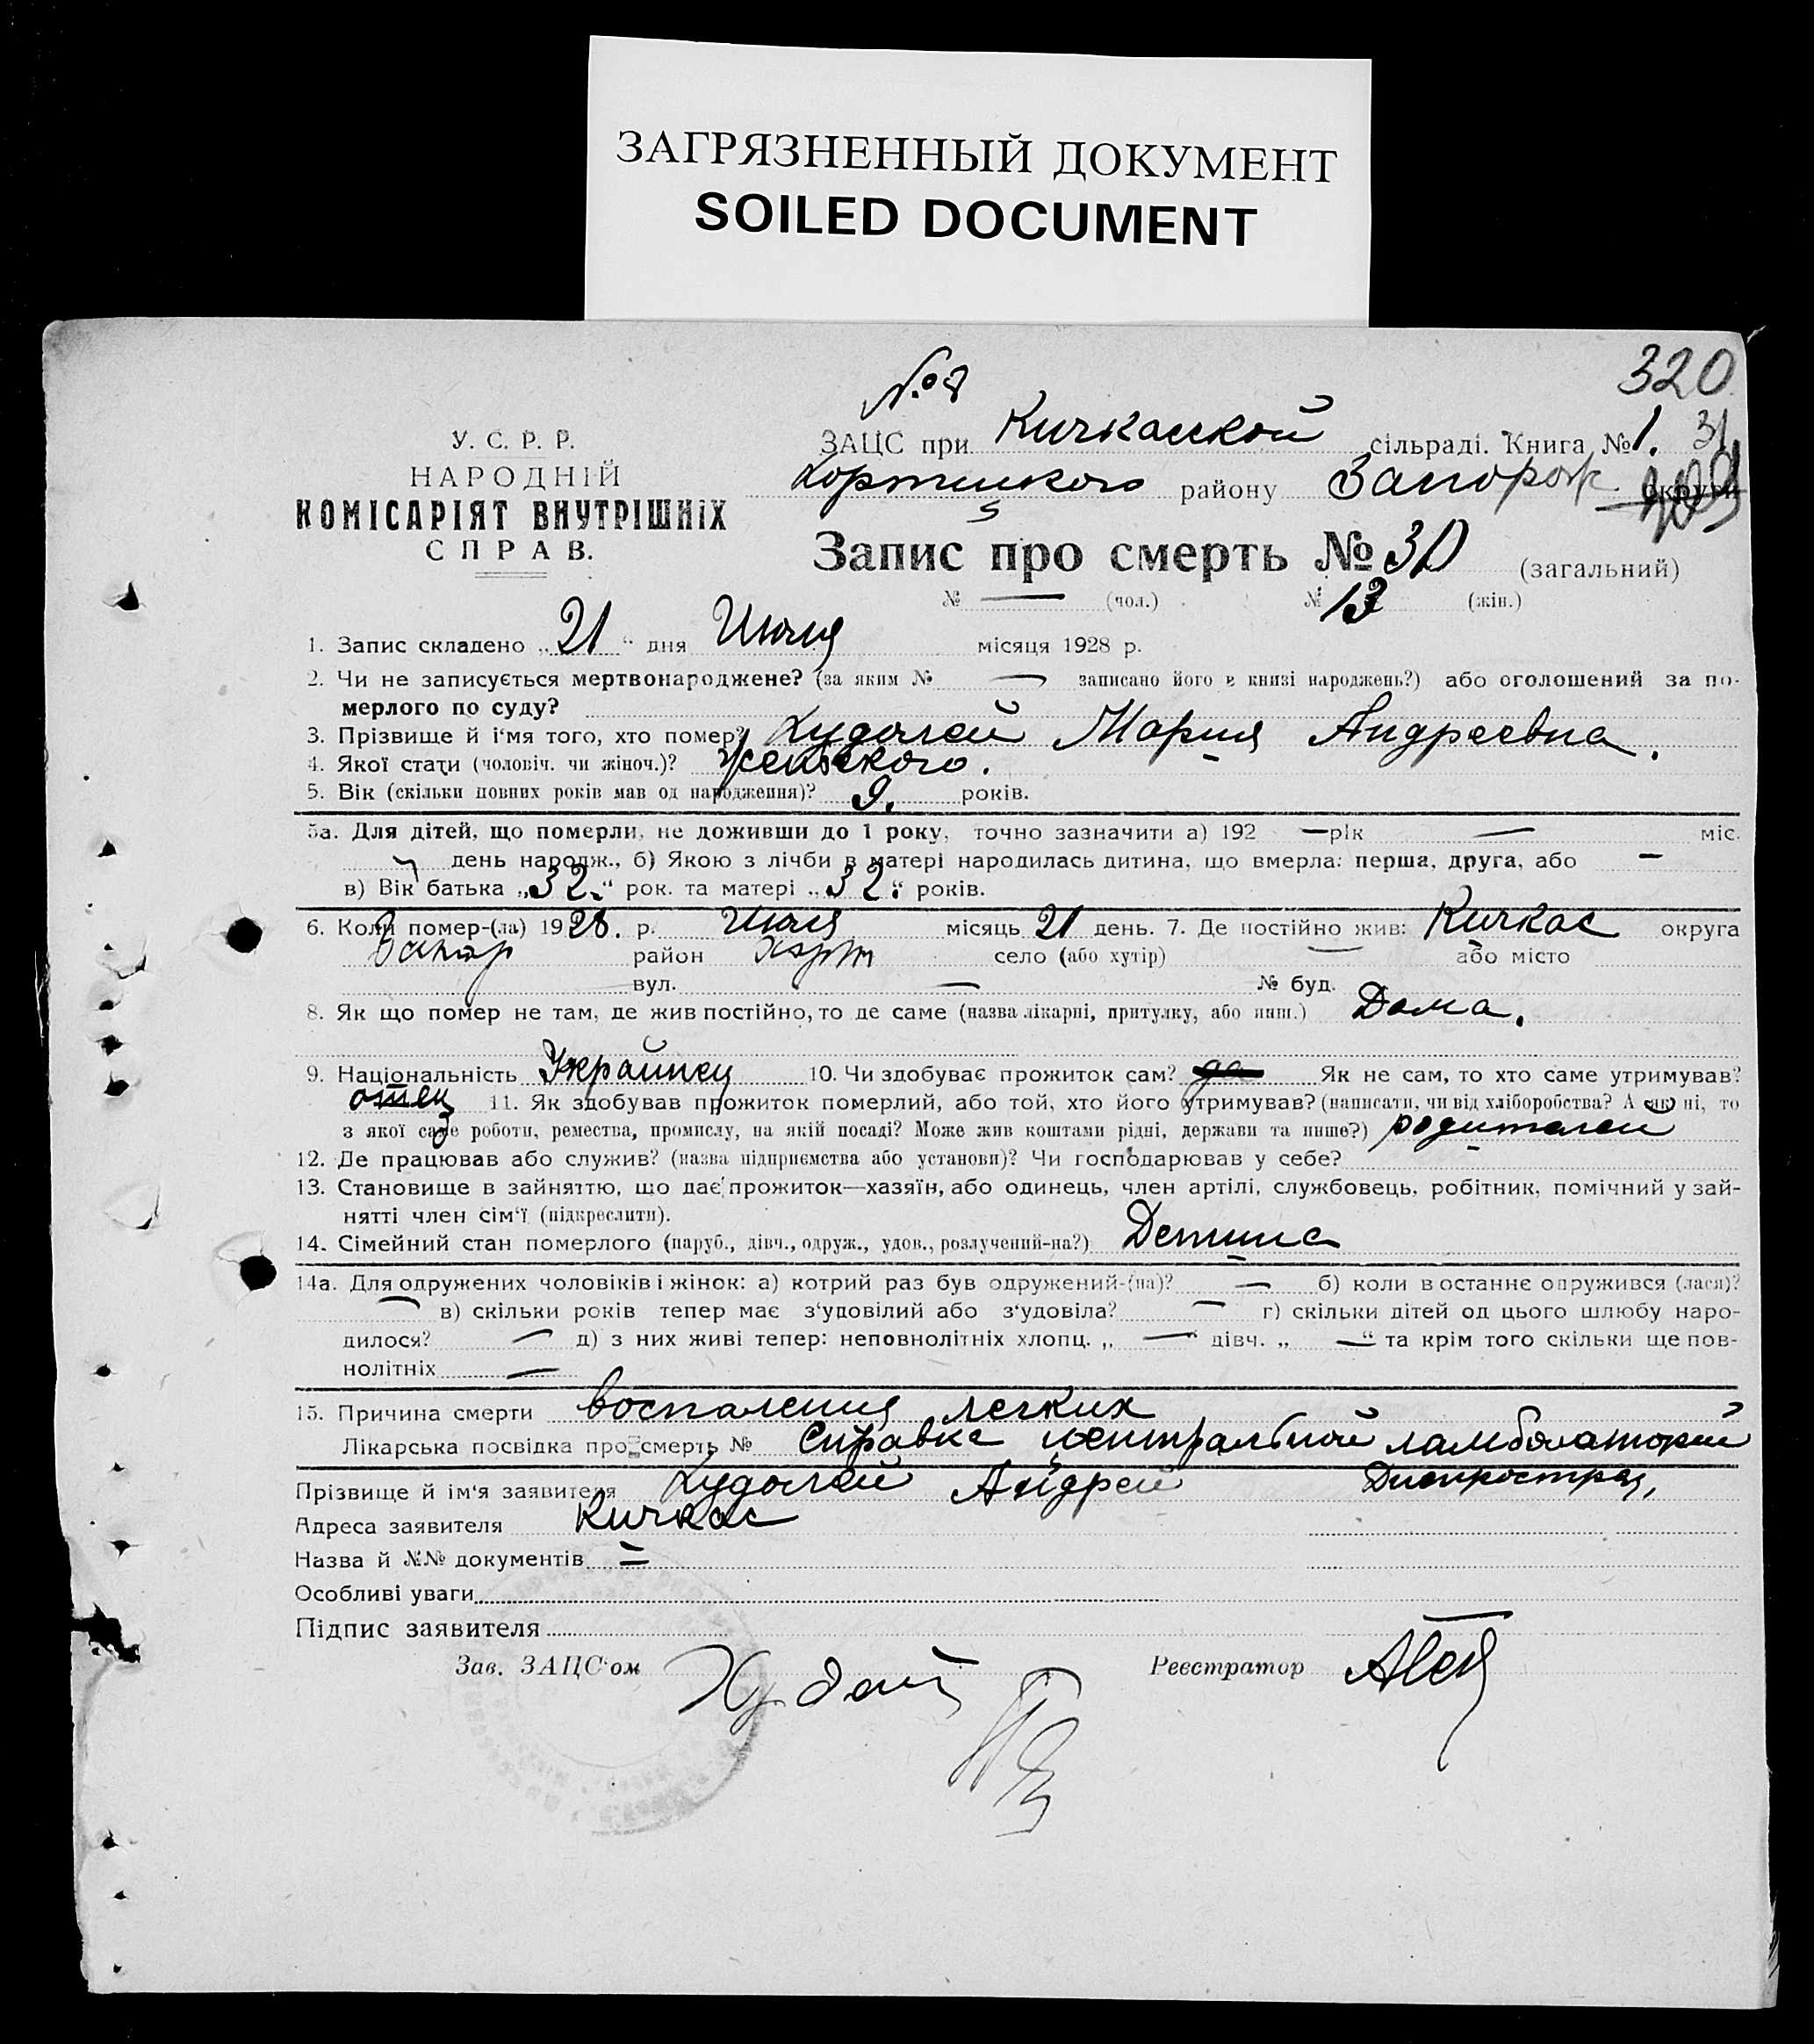 ЗАГРЯЗНЕННЫЙ ДОКУМЕНТ
SOILED DOCUMENT
320
№ 8
У. С. Р. Р.
НАРОДНІЙ
КОМІСАРІЯТ ВНУТРІШНІХ
СПРАВ.
ЗАЦС при Кичкасской сільраді. Книга № 1. 31
Хортицкого району Запорож округи
Запис про смерть № 30 (загальний)
№ — (чол.) № 13 (жін.)
1. Запис складено „21“ дня Июля місяця 1928 р.
2. Чи не записується мертвонароджене? (за яким № — записано його в книзі народжень?) або оголошений за по-
мерлого по суду?
3. Прізвище й і'мя того, хто помер? Худолей Мария Андреевна.
4. Якої стати (чоловіч. чи жіноч.)? Женского.
5. Вік (скільки повних років мав од народження)? 9. років.
5а. Для дітей, що померли, не доживши до 1 року, точно зазначити а) 192 — рік — міс.
день народж., б) Якою з лічби в матері народилась дитина, що вмерла: перша, друга, або —
в) Вік батька „32.“ рок. та матері „32.“ років.
6. Коли помер-(ла) 1928. р. Июля місяць 21 день. 7. Де постійно жив: Кичкас округа
Запор район Хорт село (або хутір) — або місто
вул. — № буд.
8. Як що помер не там, де жив постійно, то де саме (назва лікарні, притулку, або инш.) Дома.
9. Національність Украйнец 10. Чи здобуває прожиток сам? да Як не сам, то хто саме утримував?
отец 11. Як здобував прожиток померлий, або той, хто його утримував? (написати, чи від хліборобства? А як ні, то
з якої саме роботи, ремества, промислу, на якій посаді? Може жив коштами рідні, держави та инше?) родителей
12. Де працював або служив? (назва підприємства або установи)? Чи господарював у себе?
13. Становище в зайняттю, що дає прожиток—хазяїн, або одинець, член артілі, службовець, робітник, помічний у зай-
нятті член сім'ї (підкреслити).
14. Сімейний стан померлого (паруб., дівч., одруж., удов., розлучений-на?) Детина
14а. Для одружених чоловіків і жінок: а) котрий раз був одружений-(на)? — б) коли востаннє одружився (лася)?
— в) скільки років тепер має з'удовілий або з'удовіла? — г) скільки дітей од цього шлюбу наро-
дилося? — д) з них живі тепер: неповнолітніх хлопц. „—“ дівч. „—“ та крім того скільки ще пов-
нолітніх —
15. Причина смерти воспаления легких
Лікарська посвідка про смерть № Справка центральной ламболатории
Днепростроя,
Прізвище й ім'я заявителя Худолей Андрей
Адреса заявителя Кичкас
Назва й №№ документів =
Особливі уваги
Підпис заявителя
Зав. ЗАЦС'ом Реєстратор